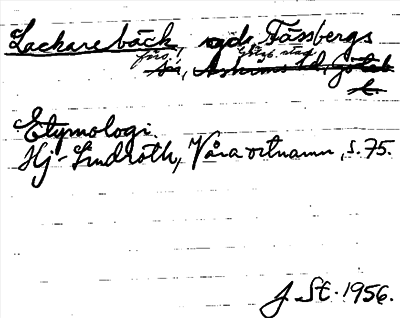 Lackarebäck, Fässbergs
frs., Gbgs. stad
sn, Askims hd, Göteb
l.
Etymologi.
Hj. Lindroth, Våra ortnamn, s. 75.
J. St. 1956.